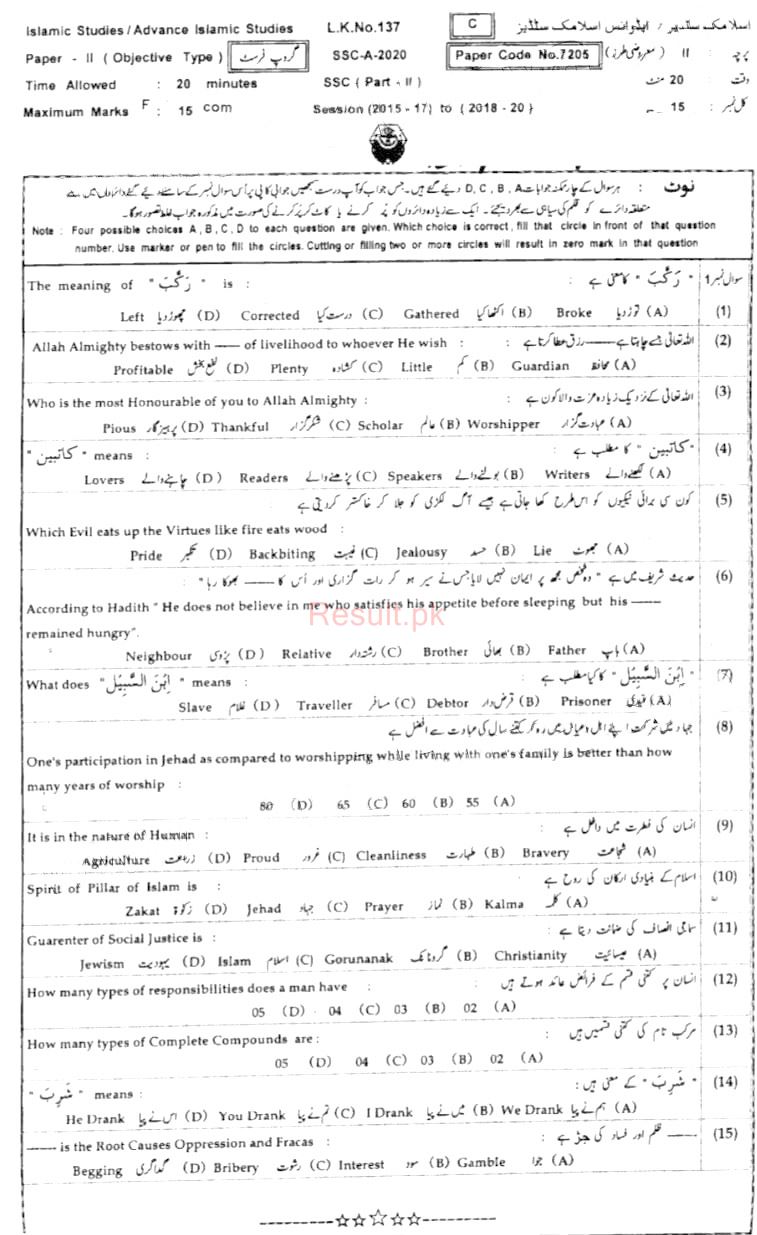 Islamic Studies / Advance Islamic Studies L.K.No.137 C اسلامک سٹڈیز / ایڈوانس اسلامک سٹڈیز
Paper - II ( Objective Type ) گروپ فرسٹ SSC-A-2020 Paper Code No.7205 پرچہ : II ( معروضی طرز )
Time Allowed : 20 minutes SSC ( Part - II ) وقت : 20 منٹ
Maximum Marks F : 15 com Session (2015 - 17) to ( 2018 - 20 ) کل نمبر : 15
نوٹ : ہر سوال کے چار ممکنہ جوابات D, C, B, A دیے گئے ہیں۔ جس جواب کو آپ درست سمجھیں جوابی کاپی پر اُس سوال نمبر کے سامنے دیے گئے دائروں میں سے
متعلقہ دائرے کو قلم کی سیاہی سے بھر دیجئے۔ ایک سے زیادہ دائروں کو پُر کرنے یا کاٹ کر پُر کرنے کی صورت میں مذکورہ جواب غلط تصور ہوگا۔
Note : Four possible choices A , B , C , D to each question are given. Which choice is correct , fill that circle in front of that question
number. Use marker or pen to fill the circles. Cutting or filling two or more circles will result in zero mark in that question
The meaning of " رَكْبَ " is : " رَكْبَ " کا معنی ہے : سوال نمبر 1
Left چھوڑ دیا (D) Corrected درست کیا (C) Gathered اکٹھا کیا (B) Broke توڑ دیا (A) (1)
Allah Almighty bestows with —— of livelihood to whoever He wish : اللہ تعالیٰ جسے چاہتا ہے —— رزق عطا کرتا ہے : (2)
Profitable نفع بخش (D) Plenty کشادہ (C) Little کم (B) Guardian محافظ (A)
Who is the most Honourable of you to Allah Almighty : اللہ تعالیٰ کے نزدیک زیادہ عزت والا کون ہے : (3)
Pious پرہیزگار (D) Thankful شکر گزار (C) Scholar عالم (B) Worshipper عبادت گزار (A)
" كاتبين " means : " كاتبين " کا مطلب ہے : (4)
Lovers چاہنے والے (D) Readers پڑھنے والے (C) Speakers بولنے والے (B) Writers لکھنے والے (A)
کون سی برائی نیکیوں کو اس طرح کھا جاتی ہے جیسے آگ لکڑی کو جلا کر خاکستر کر دیتی ہے (5)
Which Evil eats up the Virtues like fire eats wood :
Pride تکبر (D) Backbiting غیبت (C) Jealousy حسد (B) Lie جھوٹ (A)
حدیث شریف میں ہے " وہ شخص مجھ پر ایمان نہیں لایا جس نے سیر ہو کر رات گزاری اور اُس کا —— بھوکا رہا " : (6)
According to Hadith " He does not believe in me who satisfies his appetite before sleeping but his ——
Result.pk
remained hungry".
Neighbour پڑوسی (D) Relative رشتہ دار (C) Brother بھائی (B) Father باپ (A)
What does " اِبْنَ السَّبِيْل " means : " اِبْنَ السَّبِيْل " کا کیا مطلب ہے : (7)
Slave غلام (D) Traveller مسافر (C) Debtor قرض دار (B) Prisoner قیدی (A)
جہاد میں شرکت اپنے اہل و عیال میں رہ کر کتنے سال کی عبادت سے افضل ہے (8)
One's participation in Jehad as compared to worshipping while living with one's family is better than how
many years of worship :
80 (D) 65 (C) 60 (B) 55 (A)
It is in the nature of Human : انسان کی فطرت میں داخل ہے : (9)
Agriculture زراعت (D) Proud غرور (C) Cleanliness طہارت (B) Bravery شجاعت (A)
Spirit of Pillar of Islam is : اسلام کے بنیادی ارکان کی روح ہے (10)
Zakat زکوٰۃ (D) Jehad جہاد (C) Prayer نماز (B) Kalma کلمہ (A)
Guarenter of Social Justice is : سماجی انصاف کی ضمانت دیتا ہے : (11)
Jewism یہودیت (D) Islam اسلام (C) Gorunanak گرونانک (B) Christianity عیسائیت (A)
How many types of responsibilities does a man have : انسان پر کتنی قسم کے فرائض عائد ہوتے ہیں (12)
05 (D) 04 (C) 03 (B) 02 (A)
How many types of Complete Compounds are : مرکب تام کی کتنی قسمیں ہیں : (13)
05 (D) 04 (C) 03 (B) 02 (A)
" شَرِبَ " means : " شَرِبَ " کے معنی ہیں : (14)
He Drank اس نے پیا (D) You Drank تم نے پیا (C) I Drank میں نے پیا (B) We Drank ہم نے پیا (A)
—— is the Root Causes Oppression and Fracas : —— ظلم اور فساد کی جڑ ہے : (15)
Begging گداگری (D) Bribery رشوت (C) Interest سود (B) Gamble جوا (A)